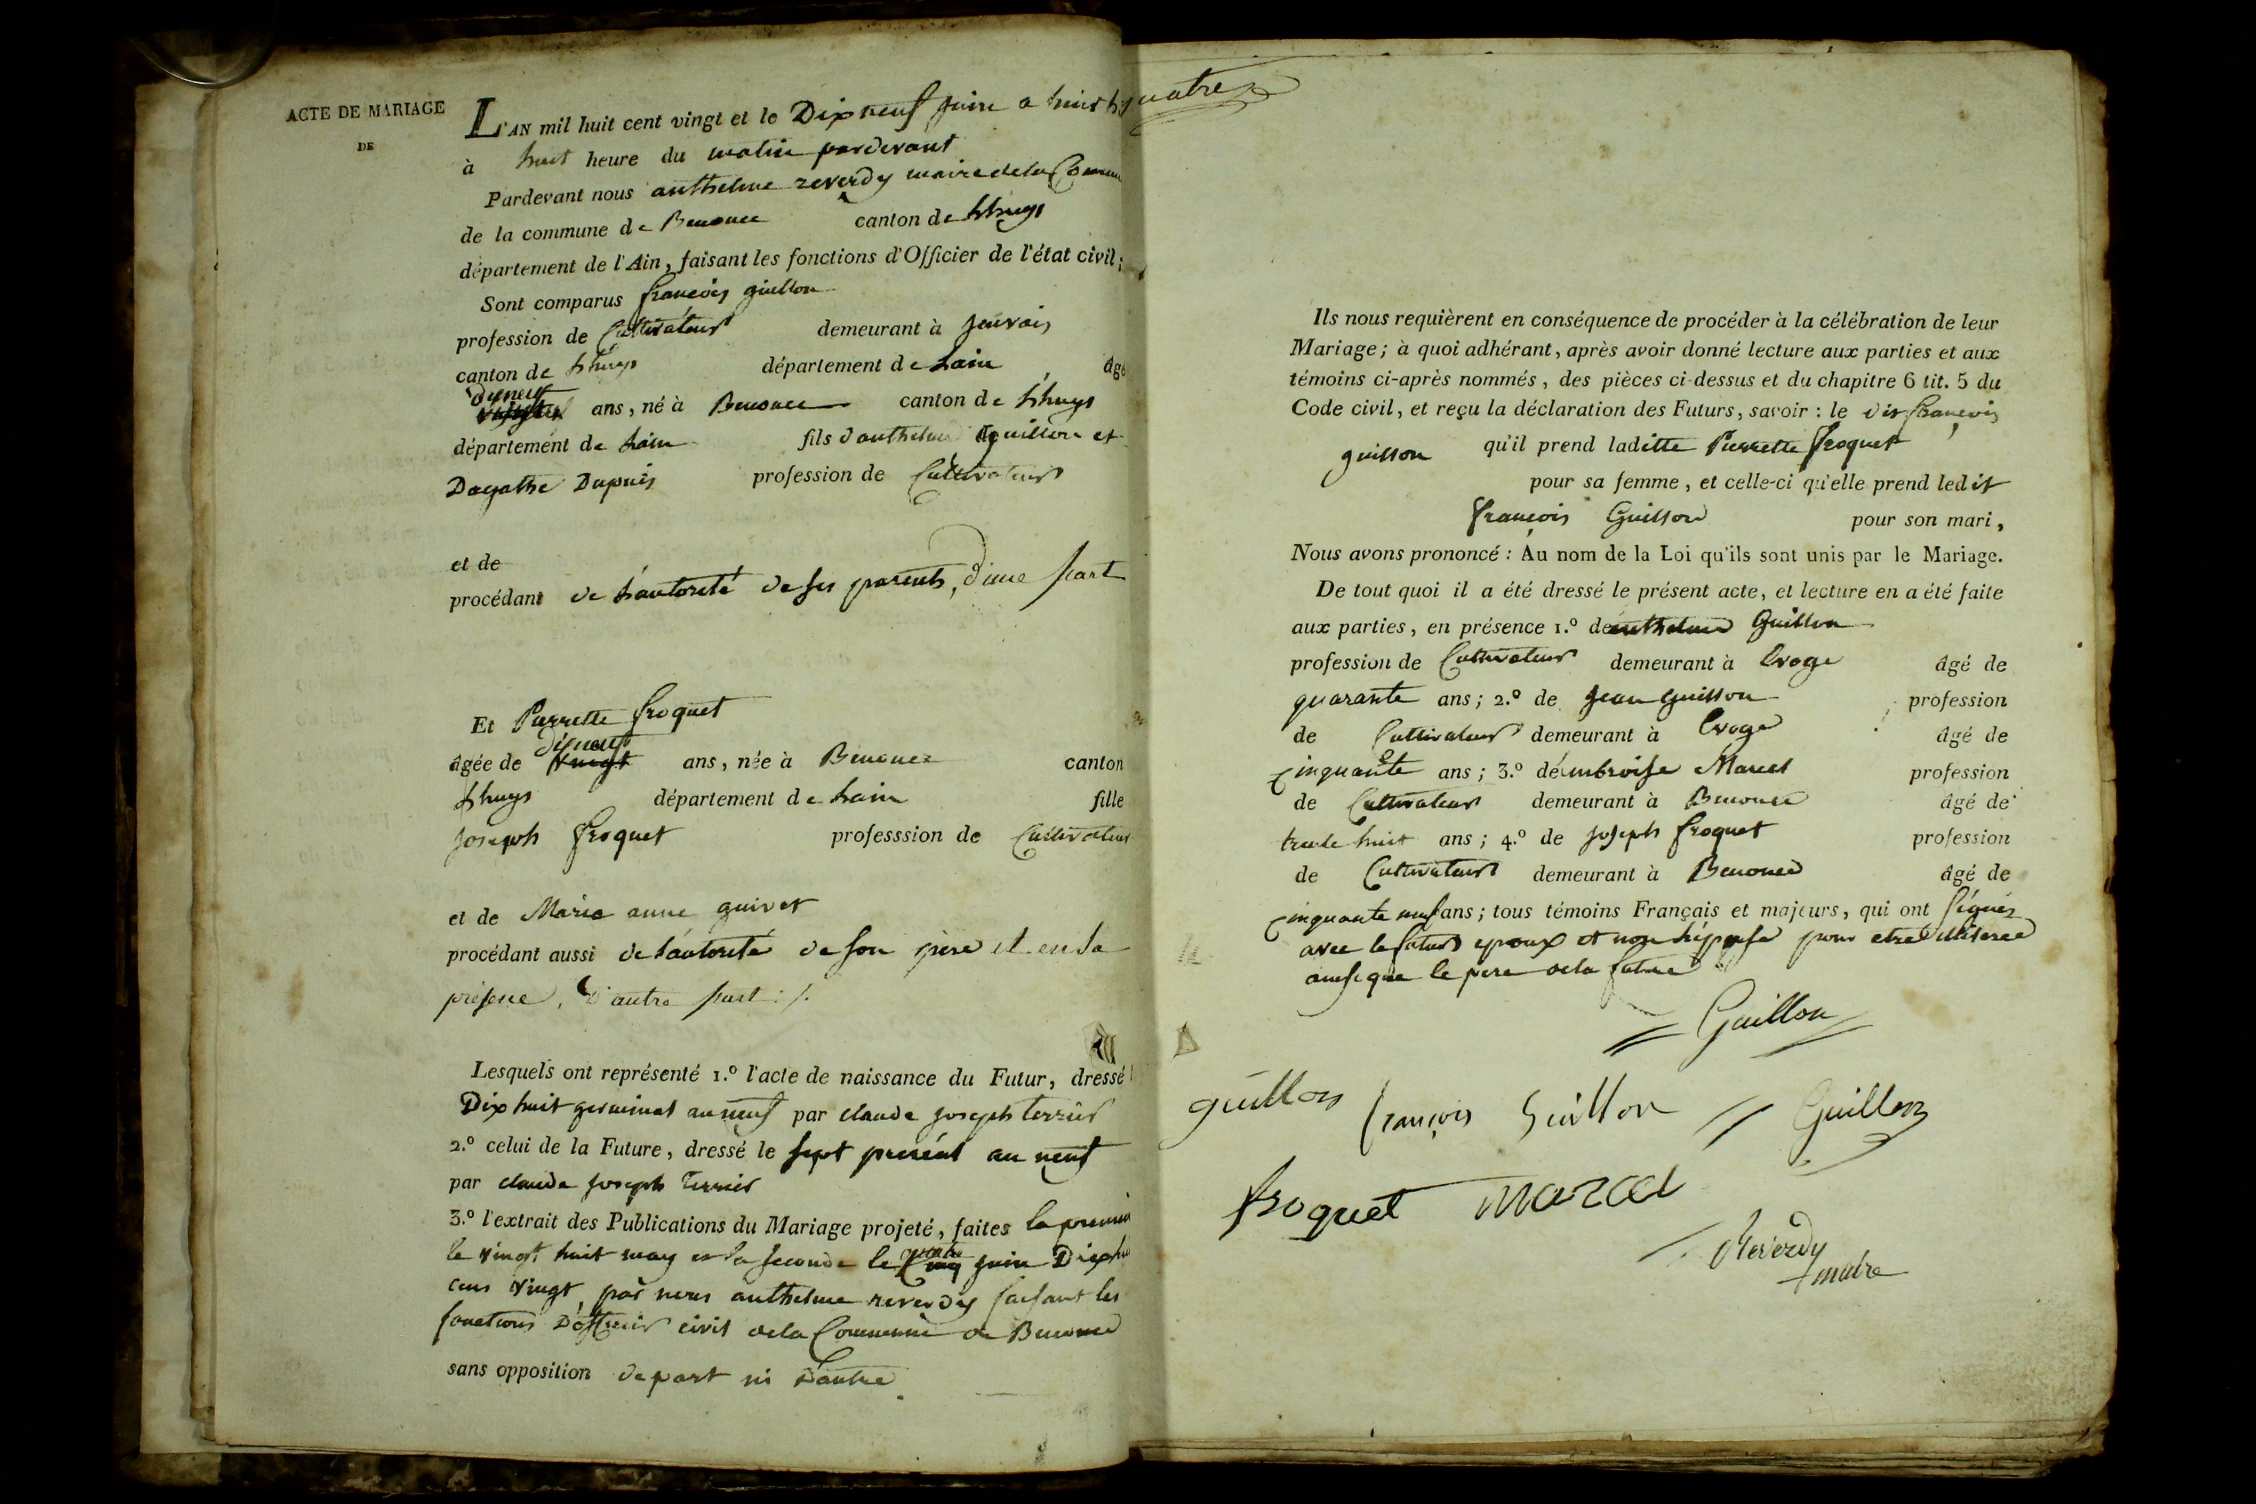 ACTE DE MARIAGE
DE
L'AN mil huit cent vingt et le Dix neuf juin a huit
à huit heure du matin pardevant
Pardevant nous anthelme reverdy maire dela Commu
de la commune de Benonce canton de Lhuys
département de l'Ain, faisant les fonctions d'Officier de l'état civil;
Sont comparus francois guillon
profession de Cultivateur demeurant à
canton de Lhuys département de Lain âgé
dixneuf
ans, né à Benonce canton de Lhuys
département de Lain fils d'anthelme guillon et
Dagathe Dupuis profession de Cultivateur
et de
procédant de Lautorité de ses parents, d'une part
Et Pierrette froquet
dixneuf
âgée de vingt ans, née à Benonce canton
Lhuys département de Lain fille
Joseph froquet professsion de Cultivateur
et de Marie anne guivet
procédant aussi de Lautorité de son père et en sa
présence, D'autre part ./.
Lesquels ont représenté 1.º l'acte de naissance du Futur, dressé
Dix huit germinal an neuf par claude joseph terrier
2.º celui de la Future, dressé le sept preréal an neuf
par claude joseph terrier
3.º l'extrait des Publications du Mariage projeté, faites la premier
quatre
le vingt huit may et la seconde le Cinq juin Dixhui
cens vingt par nous anthelme reverdy faisant les
fonctions D'officier civil dela Commune de Benonce
sans opposition de part ni d'autre
quatre
Ils nous requièrent en conséquence de procéder à la célébration de leur
Mariage; à quoi adhérant, après avoir donné lecture aux parties et aux
témoins ci-après nommés, des pièces ci-dessus et du chapitre 6 tit. 5 du
Code civil, et reçu la déclaration des Futurs, savoir : le dit françois
guillon qu'il prend laditte Pierrette froquet
pour sa femme, et celle-ci qu'elle prend ledit
françois Guillon pour son mari,
Nous avons prononcé : Au nom de la Loi qu'ils sont unis par le Mariage.
De tout quoi il a été dressé le présent acte, et lecture en a été faite
aux parties, en présence 1.º de anthelme Guillon
profession de Cultivateur demeurant à Croge âgé de
quarante ans; 2.º de jean guillon profession
de Cultivateur demeurant à Croge âgé de
cinquante ans; 3.º de ambroise Marcel profession
de Cultivateur demeurant à Benonce âgé de
trente huit ans; 4.º de joseph froquet profession
de Cultivateur demeurant à Benonce âgé de
cinquante neuf ans; tous témoins Français et majeurs, qui ont signés
avec le futur epoux et non Lépouse pour etre illiterée
ainsi que le pere dela future
Guillon
guillon françois Guillon Guillon
froquet marcel
Reverdy
maire